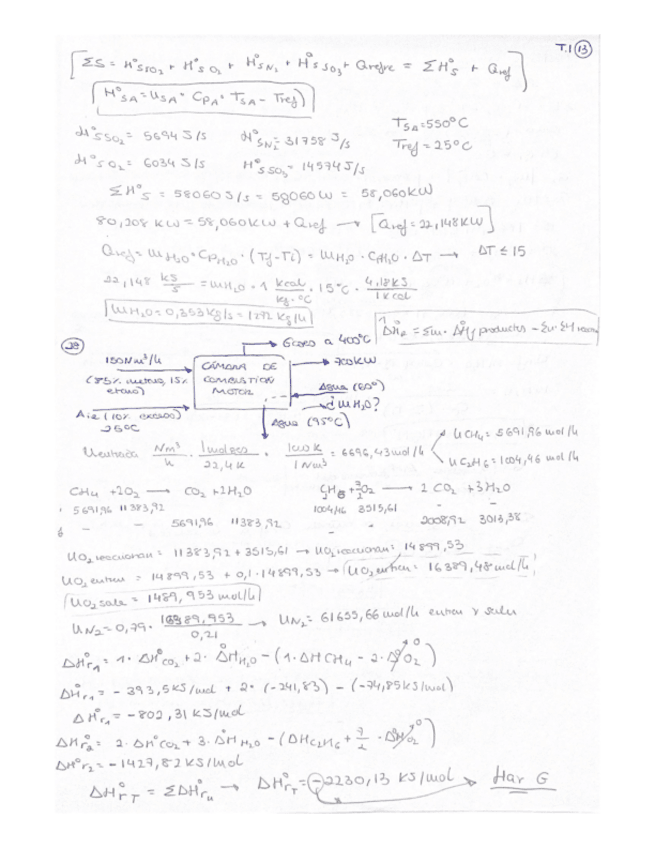 T.1 (13)
[ΣS = H°SSO₂ + H°SO₂ + H°SN₂ + H°SSO₃ + Qrefre = ΣH°S + Qref]
H°SA = uSA · CpA · TSA - Tref)
H°SSO₂ = 5694 J/s   H°SN₂ = 31758 J/s   TSA = 550°C
H°SO₂ = 6034 J/s   H°SSO₃ = 14574 J/s   Tref = 25°C
ΣH°S = 58060 J/s = 58060 W = 58,060 KW
80,208 KW = 58,060 KW + Qref → [Qref = 22,148 KW]
Qref = mH₂O · CpH₂O · (Tf - Ti) = mH₂O · CpH₂O · ΔT → ΔT ≤ 15
22,148 KJ/s = mH₂O · 1 Kcal/Kg·°C · 15°C · 4,18KJ/1Kcal
mH₂O = 0,353 Kg/s = 1272 Kg/h
Gases a 400°C
150 Nm³/h   CÁMARA DE COMBUSTIÓN MOTOR   700KW
(85% metano, 15% etano)   Agua (60°)
¿mH₂O?
Aire (10% exceso) 25°C   Agua (95°C)
Nm³/h · 1 moles/22,4 · 1000/1 Nm³ = 6696,43 mol/h   uCH₄ = 5691,96 mol/h
uC₂H₆ = 1004,46 mol/h
CH₄ + 2O₂ → CO₂ + 2H₂O   C₂H₆ + 7/2 O₂ → 2 CO₂ + 3H₂O
5691,96 11383,92   1004,46 3515,61 - -
- - 5691,96 11383,92   - - 2008,92 3013,38
uO₂ reaccionan = 11383,92 + 3515,61 → uO₂ reaccionan = 14899,53
uO₂ entran = 14899,53 + 0,1·14899,53 → uO₂ entran = 16389,48 mol/h
uO₂ sale = 1489,953 mol/h
uN₂ = 0,79 · 16389,953/0,21 → uN₂ = 61655,66 mol/h entran y salen
ΔH°r₁ = 1 · ΔH°CO₂ + 2 · ΔH°H₂O - (1 · ΔH CH₄ - 2 · ΔH°O₂) 0
ΔH°r₁ = -393,5 KJ/mol + 2 · (-241,83) - (-74,85 KJ/mol)
ΔH°r₁ = -802,31 KJ/mol
ΔH°r₂ = 2 · ΔH°CO₂ + 3 · ΔH°H₂O - (ΔH C₂H₆ + 7/2 · ΔH°O₂) 0
ΔH°r₂ = -1427,82 KJ/mol
ΔH°rT = ΣΔH°ru → ΔH°rT = -2230,13 KJ/mol